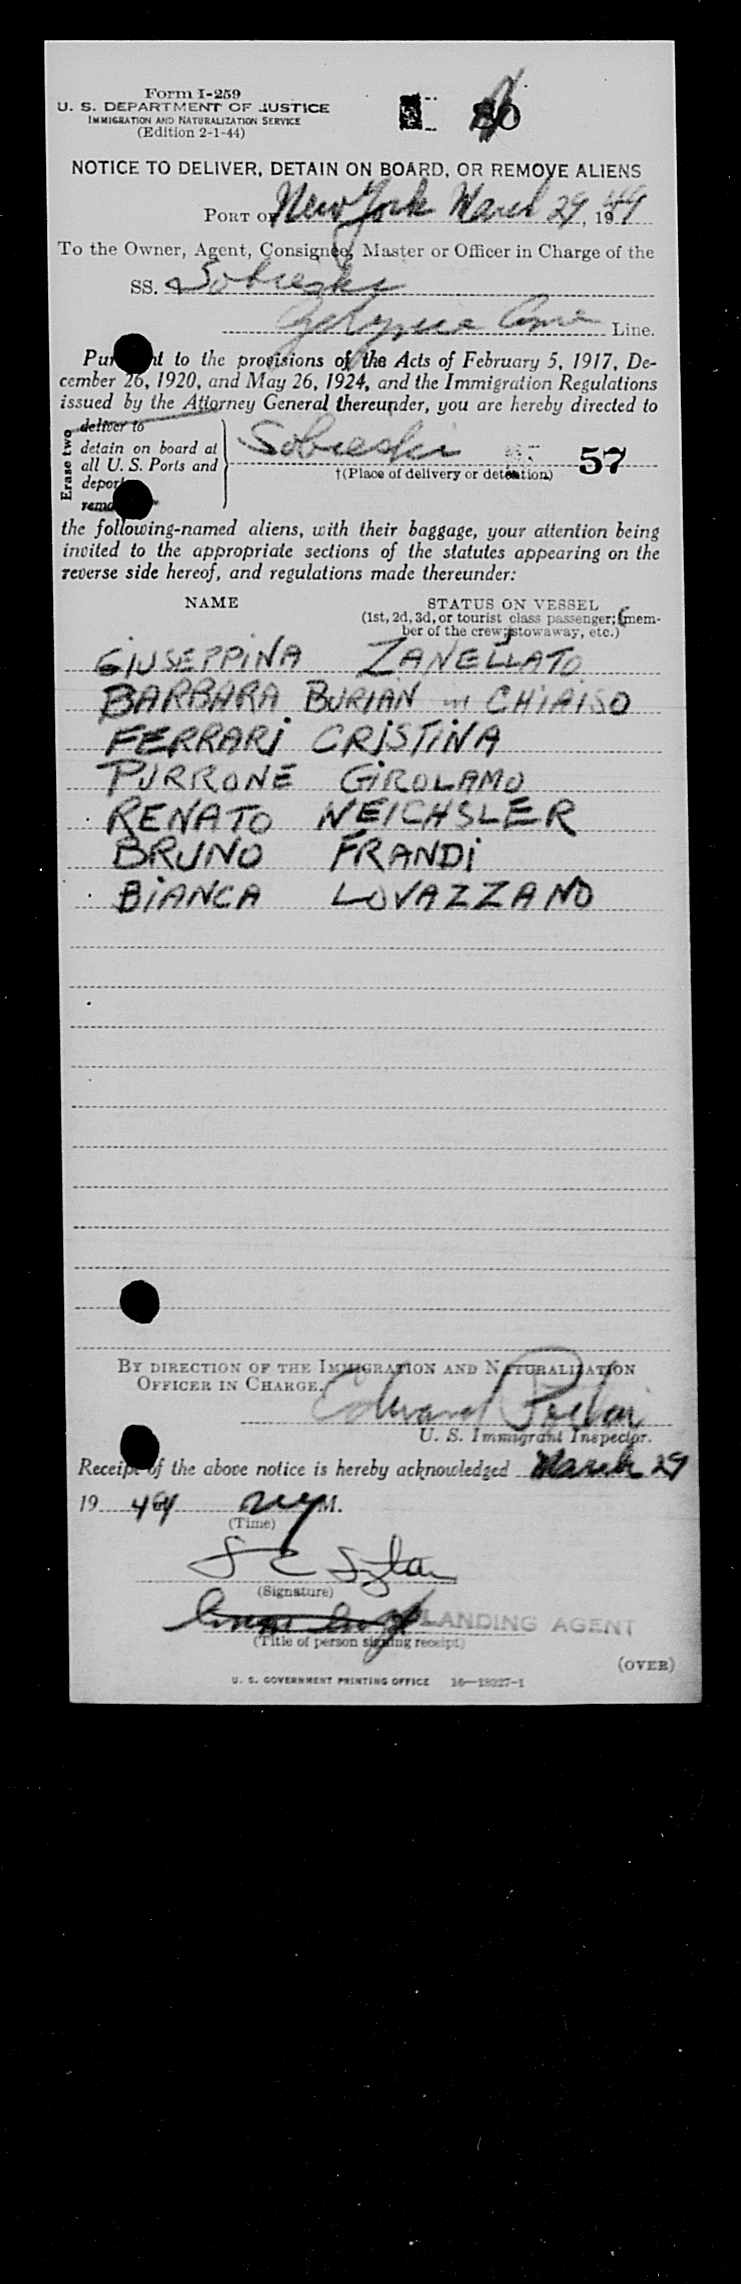 Form I-259
U. S. DEPARTMENT OF JUSTICE
IMMIGRATION AND NATURALIZATION SERVICE
(Edition 2-1-44)
NOTICE TO DELIVER, DETAIN ON BOARD, OR REMOVE ALIENS
PORT OF New York March 29, 1949
To the Owner, Agent, Consignee, Master or Officer in Charge of the
SS. Sobieski
Gdynia Line.
Pursuant to the provisions of the Acts of February 5, 1917, De-
cember 26, 1920, and May 26, 1924, and the Immigration Regulations
issued by the Attorney General thereunder, you are hereby directed to
Erase two
deliver to
detain on board at
all U. S. Ports and
deport
Sobieski 57
†(Place of delivery or detention)
the following-named aliens, with their baggage, your attention being
invited to the appropriate sections of the statutes appearing on the
reverse side hereof, and regulations made thereunder:
NAME STATUS ON VESSEL
(1st, 2d, 3d, or tourist class passenger; mem-
ber of the crew; stowaway, etc.)
GIUSEPPINA ZANELLATO
BARBARA BURIAN in CHIAISO
FERRARI CRISTINA
PURRONE GIROLAMO
RENATO WEICHSLER
BRUNO FRANDI
BIANCA LOVAZZANO
BY DIRECTION OF THE IMMIGRATION AND NATURALIZATION
OFFICER IN CHARGE.
Edward
U. S. Immigrant Inspector.
Receipt of the above notice is hereby acknowledged March 29
1949 M.
(Time)
(Signature)
LANDING AGENT
(Title of person signing receipt)
(OVER)
U. S. GOVERNMENT PRINTING OFFICE 16—18227-1